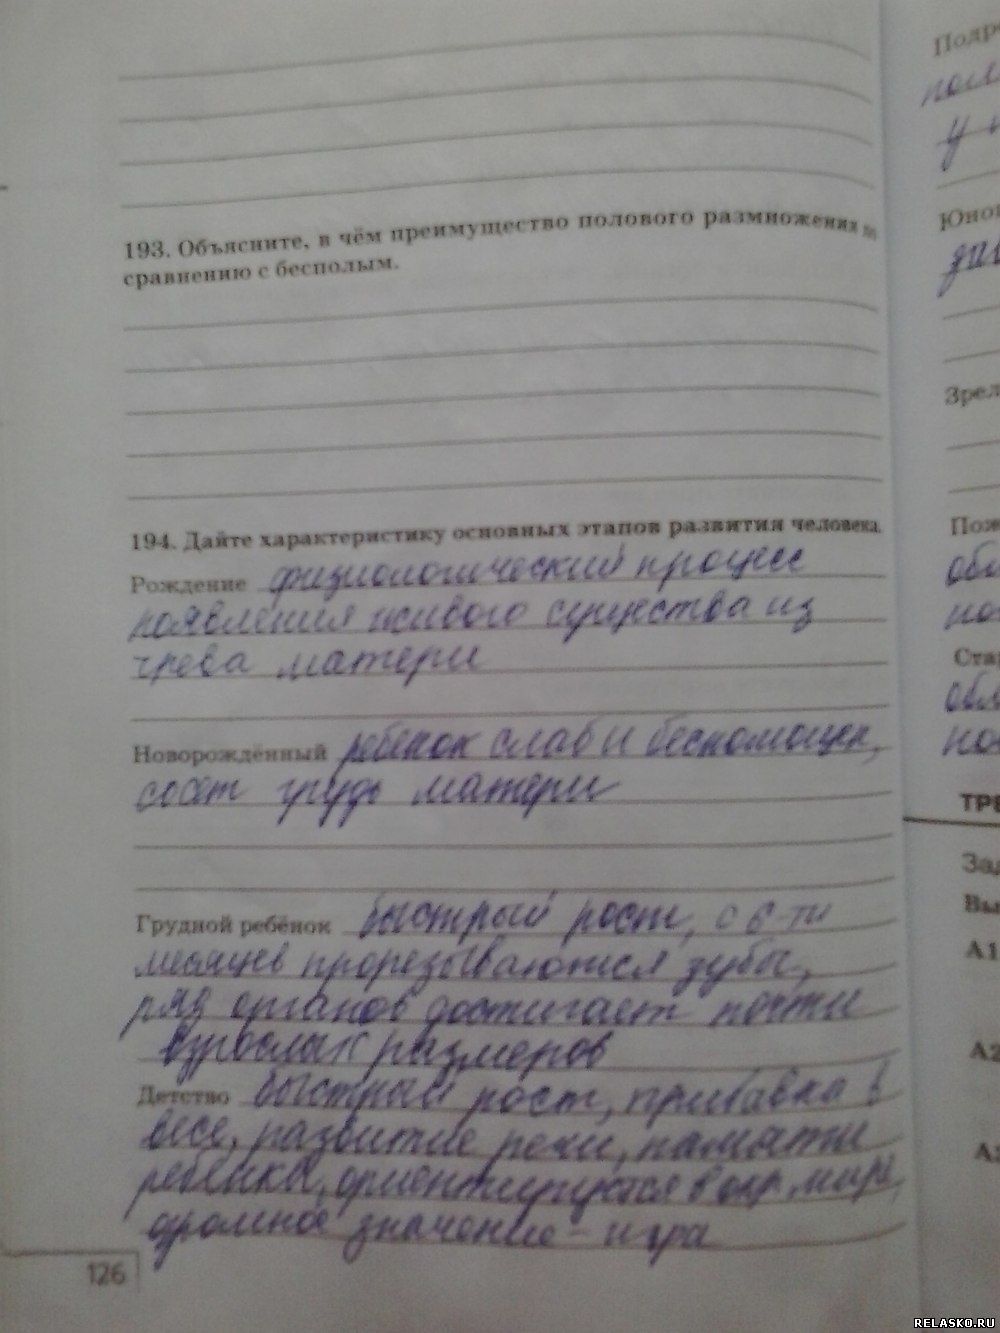 193. Объясните, в чём преимущество полового размножения по
сравнению с бесполым.
194. Дайте характеристику основных этапов развития человека.
Рождение физиологический процесс
появления живого существа из
чрева матери
Новорождённый ребёнок слаб и беспомощен,
сосёт грудь матери
Грудной ребёнок быстрый рост, с 6-ти
месяцев прорезываются зубы,
ряд органов достигает почти
взрослых размеров
Детство быстрый рост, прибавка в
весе, развитие речи, памяти
ребёнка, ориентируется в окр. мире,
огромное значение - игра
126
Подро
пол
у
Юнош
Зрел
Пож
Стар
ТРЕ
Зад
Вы
А1
А2
А3
RELASKO.RU